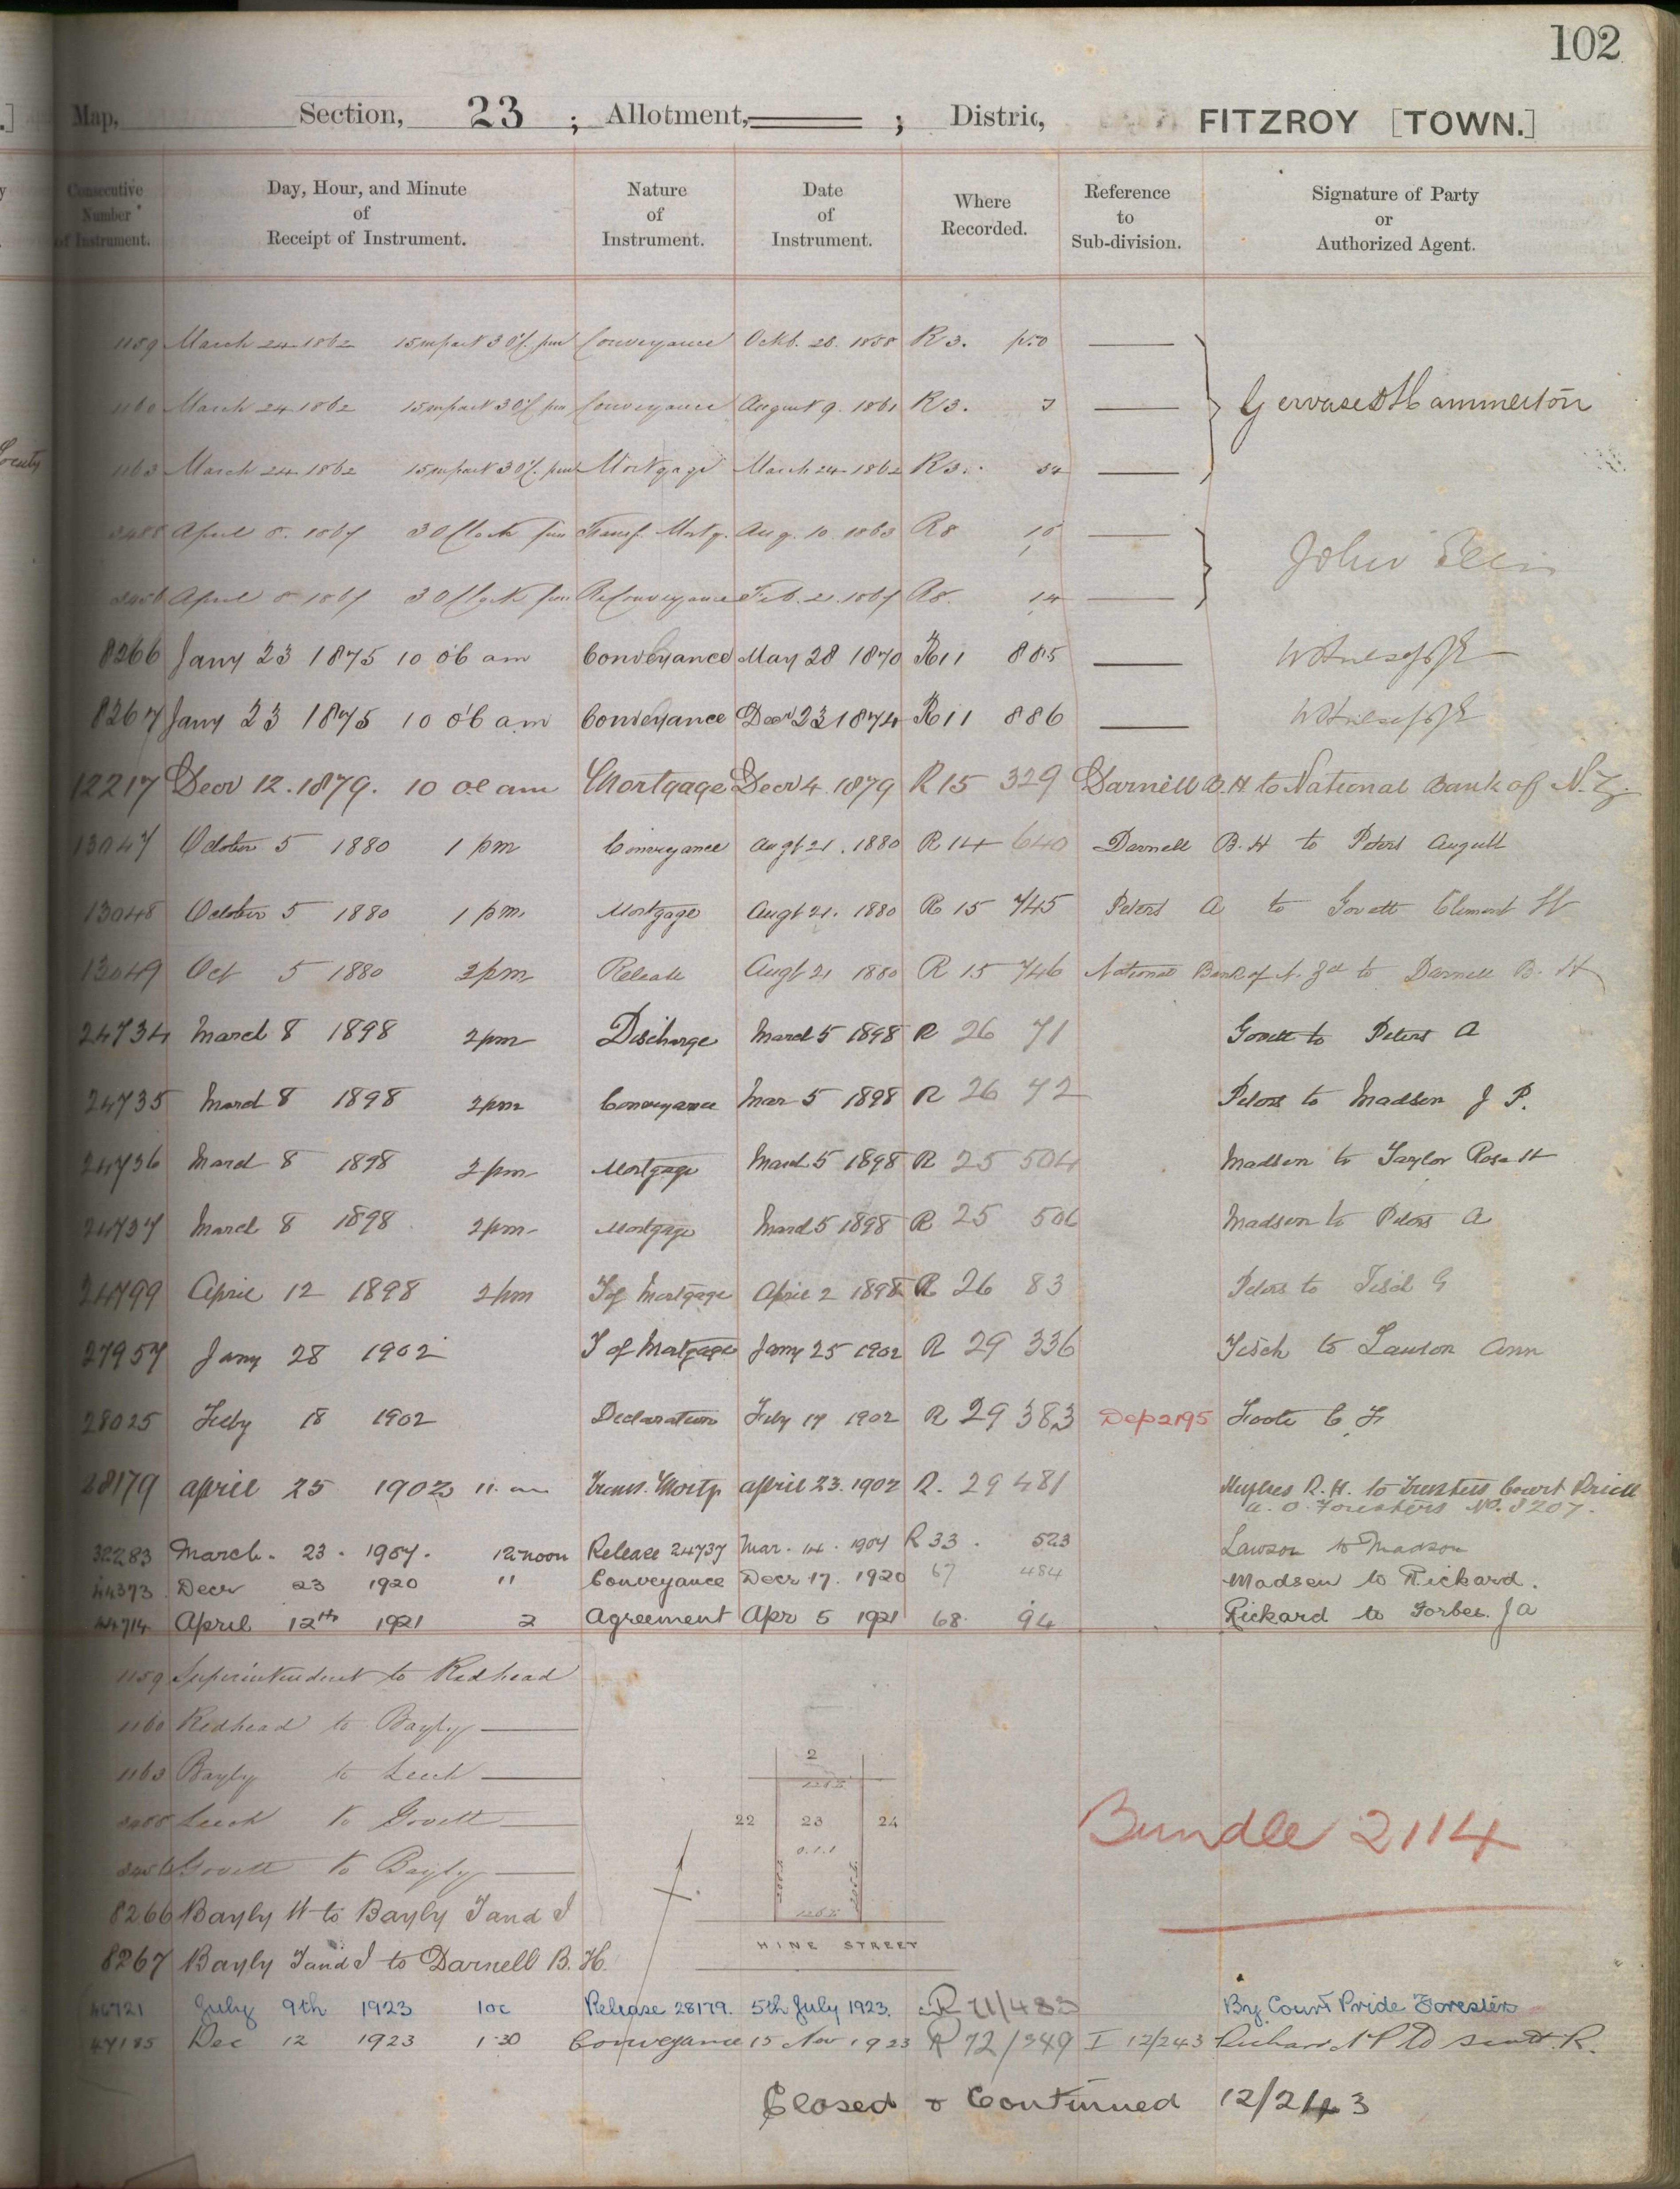 102
Map, Section, 23 ; Allotment, ; Distric, FITZROY [TOWN.]
Consecutive Number of Instrument.
Day, Hour, and Minute of Receipt of Instrument.
Nature of Instrument.
Date of Instrument.
Where Recorded.
Reference to Sub-division.
Signature of Party or Authorized Agent.
1159 March 24 1862 15 m past 3 O'C. pm Conveyance Octb. 28. 1858 R3. 
1160 March 24 1862 15 m past 3 O'C pm Conveyance August 9. 1861 R3.
Gervase D Hammerton
1163 March 24 1862 15 m past 3 O'C. pm Mortgage March 24 1862 R3.
April 8. 1867 3 O'Clock pm Transf. Mortg. Aug. 10. 1863 R8
John
April 8 1867 3 O'Clock pm ReConveyance Feb. 21. 1867 R8. 14
8266 Jany 23 1875 10 o'c am Conveyance May 28 1870 R11 885
8267 Jany 23 1875 10 o'c am Conveyance Decr 23 1874 R11 886
12217 Decr 12. 1879. 10 oc am Mortgage Decr 4 1879 R15 329 Darnell B. H to National Bank of N. Z.
13047 October 5 1880 1 pm Conveyance Augt 21. 1880 R 14 640 Darnell B. H to Peters August
13048 October 5 1880 1 pm. Mortgage Augt 21. 1880 R 15 745 Peters A to Govett Clement W
13049 Oct 5 1880 2pm Release Augt 21 1880 R 15 746 National Bank of N. Zd to Darnell B. H
24734 March 8 1898 2pm Discharge March 5 1898 R 26 71 Govett to Peters A
24735 March 8 1898 2pm Conveyance Mar 5 1898 R 26 72 Peters to Madsen J P.
24736 March 8 1898 2pm Mortgage March 5 1898 R 25 504 Madsen to Taylor Rose H
24737 March 8 1898 2pm Mortgage March 5 1898 R 25 506 Madsen to Peters A
24799 April 12 1898 2pm T of Mortgage April 2 1898 R 26 83 Peters to Tisch G
27957 Jany 28 1902 T of Mortgage Jany 25 1902 R 29 336 Tisch to Lawson Ann
28025 Feby 18 1902 Declaration Feby 17 1902 R 29 383 Dep 2195 Foote C F
28179 April 25 1902 11 am Trans. Mortg April 23. 1902 R. 29 481 Hughes R. H. to Trustees Court Pride
A. O. Foresters No. 8207.
32283 March. 23. 1907. 12 noon Release 24737 Mar. 14. 1907 R 33. 523 Lawson to Madsen
44373 Decr 23 1920 " Conveyance Decr 17. 1920 67 484 Madsen to Rickard.
44714 April 12th 1921 2 Agreement Apr 5 1921 68. 94 Rickard to Forbes. J A
1159 Superintendent to Redhead
1160 Redhead to Bayly
1163 Bayly to Leech
Leech to Govett
Govett to Bayly
8266 Bayly W to Bayly T and I
8267 Bayly T and I to Darnell B. H.
2
22 23 24
0.1.1
HINE STREET
Bundle 2114
46721 July 9th 1923 10c Release 28179. 5th July 1923. R 71/483 By Court Pride Foresters
47185 Dec 12 1923 1.30 Conveyance 15 Nov 1923 R 72/349 I 12/243 Rickard N P to Scott. R.
Closed & Continued 12/243